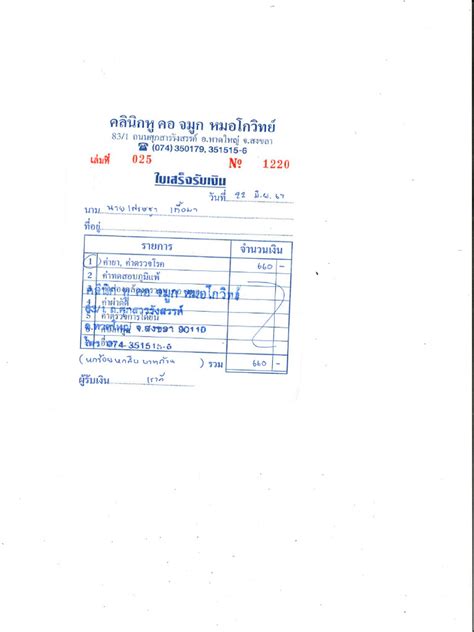 คลินิกหู คอ จมูก หมอโกวิทย์
83/1 ถนนศุภสารรังสรรค์ อ.หาดใหญ่ จ.สงขลา
☎ (074) 350179, 351515-6
เล่มที่ 025 № 1220
ใบเสร็จรับเงิน
วันที่ 22
นาม นาย
ที่อยู่
รายการ จำนวนเงิน
1 ค่ายา, ค่าตรวจโรค 660 -
2 ค่าทดสอบภูมิแพ้
3
คลินิก หู คอ จมูก หมอโกวิทย์
4 ค่าผ่าตัด
83/1 ถ.ศุภสารรังสรรค์
5 ค่าตรวจการได้ยิน
อ.หาดใหญ่ จ.สงขลา 90110
โทร 074-351515-6
(หกร้อยหกสิบบาทถ้วน) รวม 660 -
ผู้รับเงิน